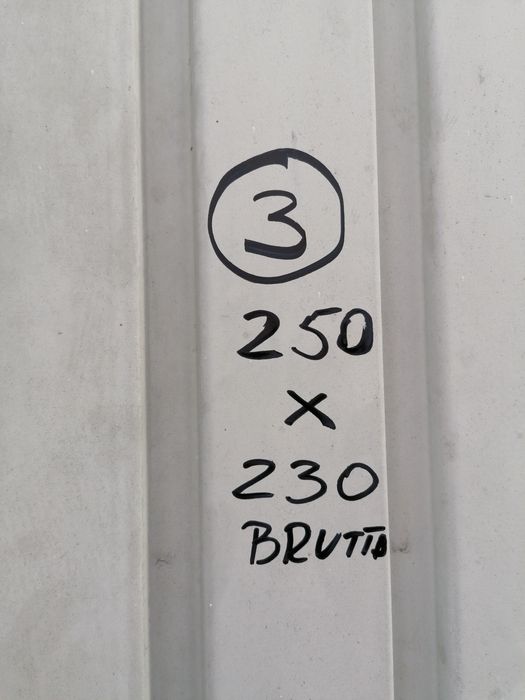 3
250
x
230
BRUTTA